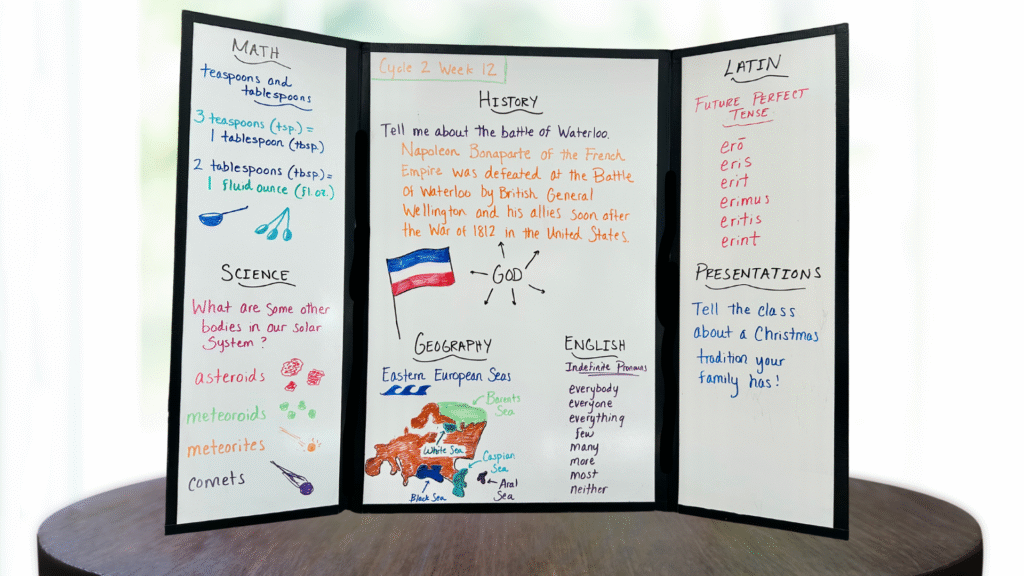 MATH
teaspoons and
tablespoons
3 teaspoons (tsp.) =
1 tablespoon (tbsp.)
2 tablespoons (tbsp) =
1 fluid ounce (fl. oz.)
SCIENCE
What are some other
bodies in our solar
System?
asteroids
meteoroids
meteorites
comets
Cycle 2 Week 12
HISTORY
Tell me about the battle of Waterloo.
Napoleon Bonaparte of the French
Empire was defeated at the Battle
of Waterloo by British General
Wellington and his allies soon after
the War of 1812 in the United States.
GOD
GEOGRAPHY
Eastern European Seas
Barents
Sea
White Sea
Caspian
Sea
Black Sea
Aral
Sea
ENGLISH
Indefinite Pronouns
everybody
everyone
everything
few
many
more
most
neither
LATIN
FUTURE PERFECT
TENSE
erō
eris
erit
erimus
eritis
erint
PRESENTATIONS
Tell the class
about a Christmas
tradition your
family has!